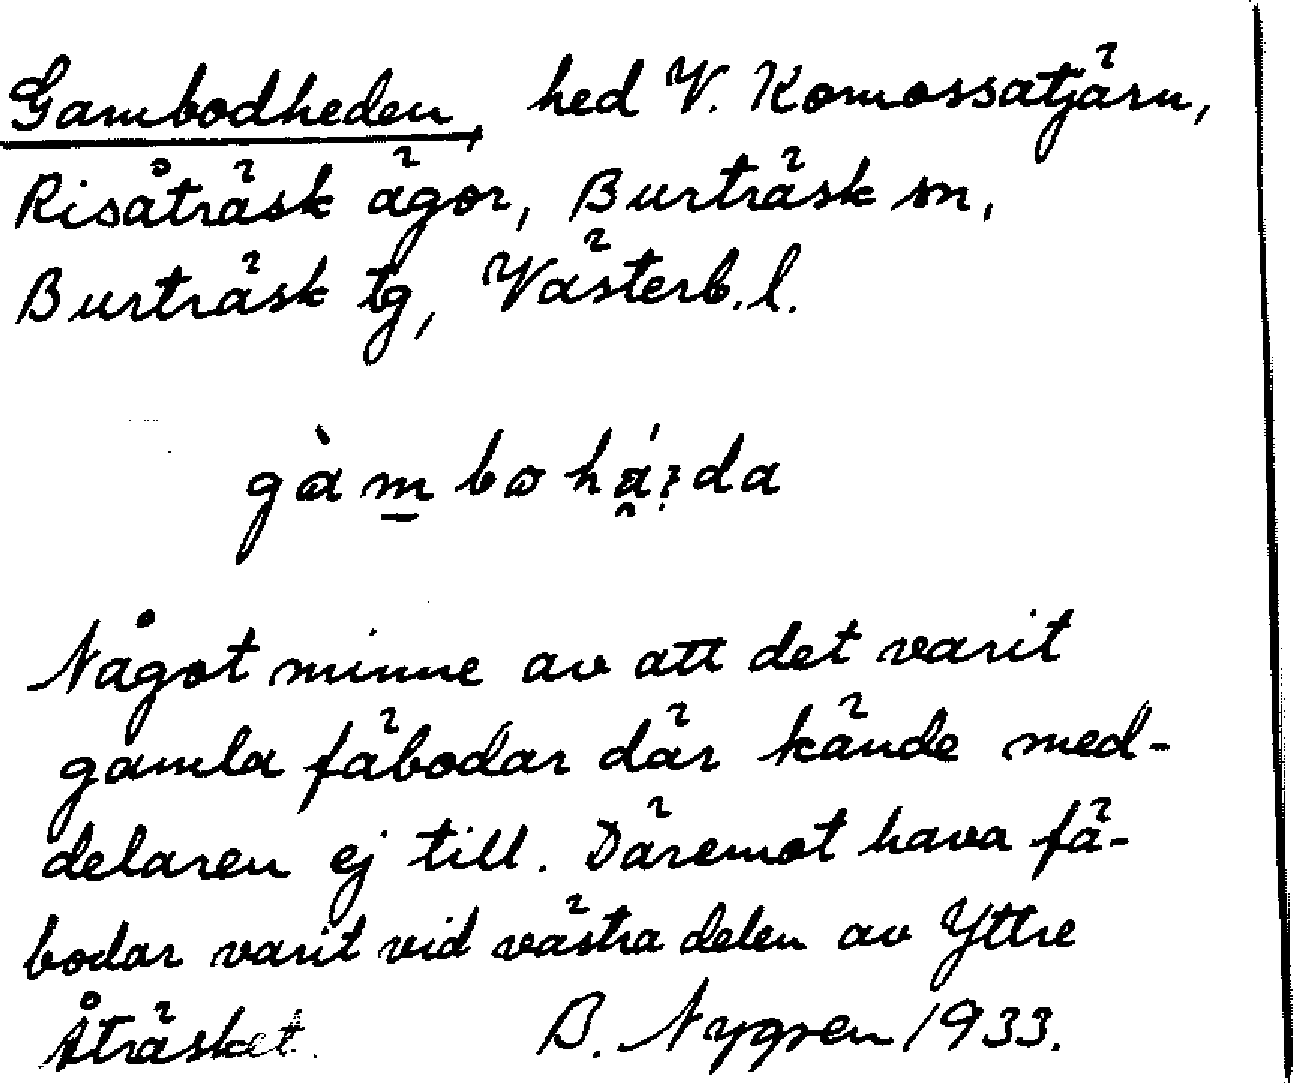 Gambodheden, hed V. Komossatjärn,
Risåträsk ägor, Burträsk sn,
Burträsk tg, Västerb. l.
gàm̲bohá̯ːda
Något minne av att det varit
gamla fäbodar där kände med-
delaren ej till. Däremot hava fä-
bodar varit vid västra delen av Yttre
Åträsket. B. Nygren 1933.